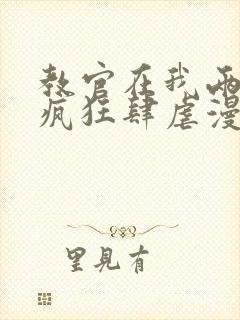 教官在我两
疯狂肆虐漫
里見有